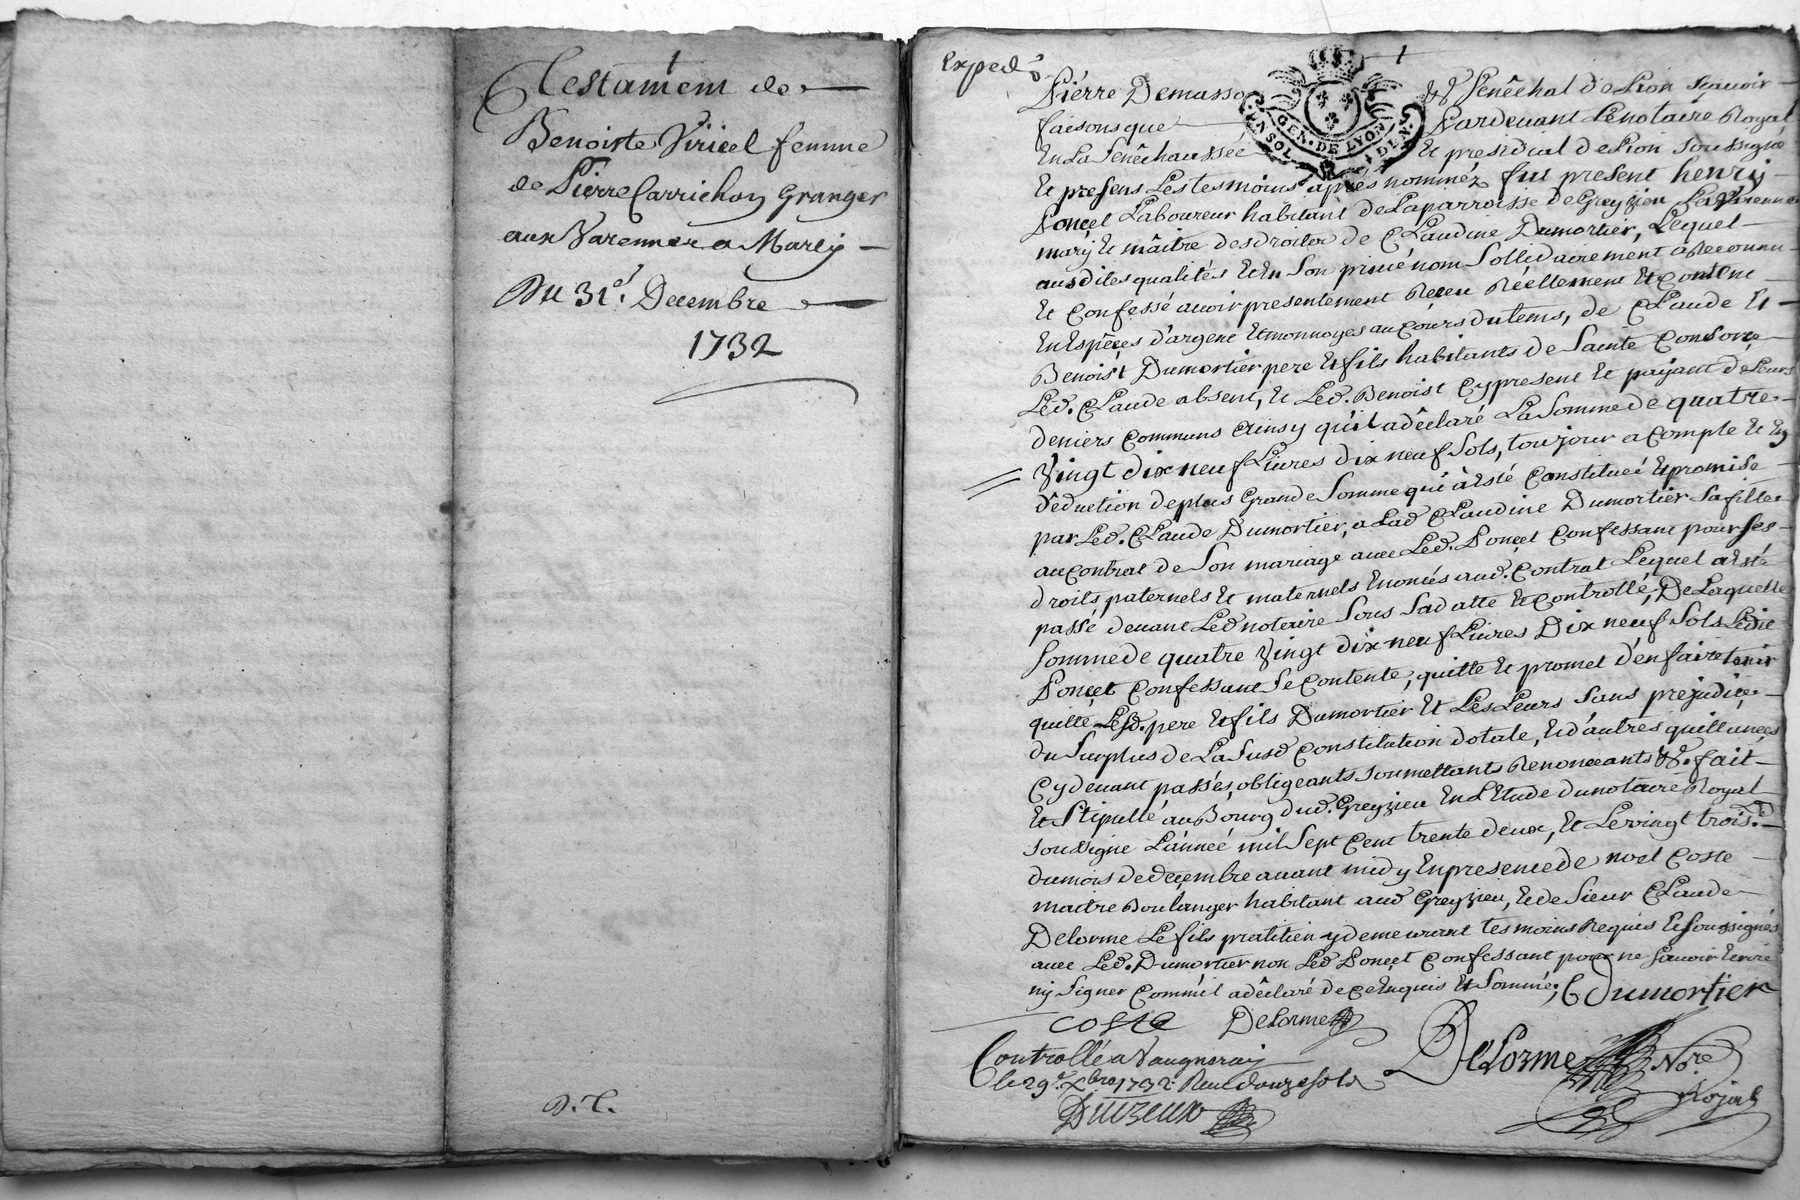 Testament de
Benoiste Viricel femme
de Pierre Carrichon Granger
aux Varennes a Marcy
Du 31e. Decembre
1732
D.C.
Exped.
1
Pierre Demasso &c Senêchal de Lion sçavoir
faisons que Pardevant Le notaire Royal
GEN. DE LYON
En La Senêchaussée Et presidial de Lion soussigné
Et presens Les tesmoins aprés nommez fut present henry
Ponçet Laboureur habitant de La parroisse de Greyzieu La Varenne
mary Et mâitre des droits de Claudine Dumortier, Lequel
ausdites qualités Et En Son privé nom Sollidairement a Reconnu
Et Confessé avoir presentement Reçeu Réellement Et Contene
En Espêces d'argent Et monnoyes au Cours du tems, de Claude Et
Benoist Dumortier pere Et fils habitants de Sainte Consorce
Led. Claude absent, Et Led. Benoist Cy present Et payant de Leurs
deniers Communs Ainsy qu'il a dêclaré La Somme de quatre
Vingt dix neuf Livres dix neuf Sols, toujour a Compte Et En
dêduction de plus Grande Somme qui à Esté Constituée Et promise
par Led. Claude Dumortier, a Lad Claudine Dumortier Sa fille
au Contrat de Son mariage avec Led. Ponçet Confessant pour Ses
droits paternels Et maternels Enoncés aud. Contrat Lequel a Esté
passé devant Led notaire Sous Sa datte Et Controllé, De Laquelle
Somme de quatre Vingt dix neuf Livres Dix neuf Sols Ledit
Ponçet Confessant Se Contente, quitte Et promet d'en faire tenir
quitte Lesd. pere Et fils Dumortier Et Les Leurs Sans prejudice
du Surplus de La Susd Constitution dotale, Et d'autres quittances
Cy devant passés, obligeants Soumettants Renonceants &c. fait
Et Stipullé au Bourg dud. Greyzieu En L'Etude du notaire Royal
soussigné L'année mil Sept Cent trente deux, Et Le vingt trois.e
du mois de decembre avant midy En presence de noel Coste
maitre Boulanger habitant aud Greyzieu, Et de Sieur Claude
Delorme Le fils pratitien y demeurant tesmoins Requis Et Soussignés
avec Led. Dumortier non Led Ponçet Confessant pour ne Savoir Ecrire
ny Signer Comm'il a dêclaré de Ce Enquis Et Sommé, C Dumortier
Coste Delorme
DeLorme No.re
Royal
Controllé a Vaugneray
le 29e. Xbre 1732. Reçu douze sols